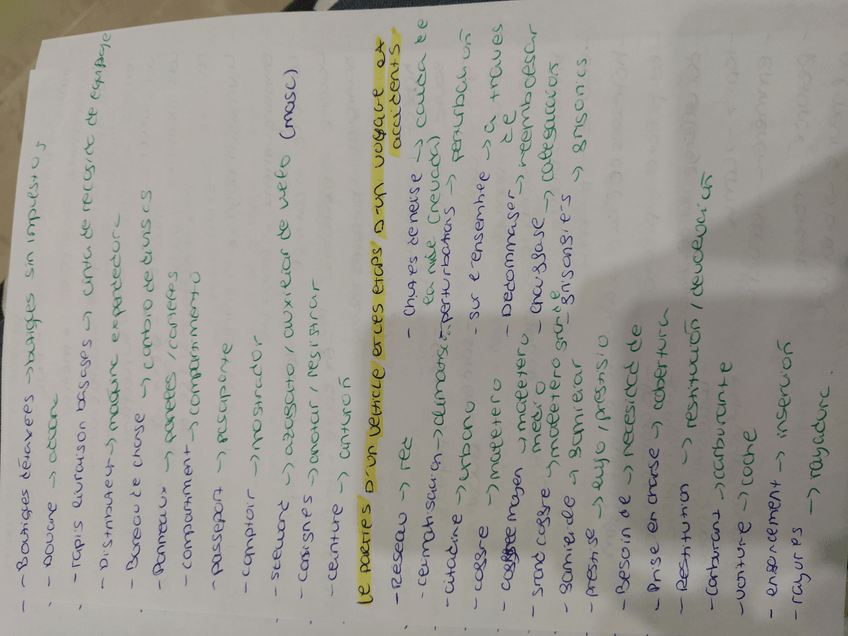 - Boutiges détaxées → butiges sin impuestos
- Douane → aduana
- Tapis livraison bagages → cinta de recogida de equipaje
- Distributeur → maquina expendedora
- Bureau de change → cambio de divisas
- Panneaux → paneles / carteles
- compartiment → compartimento
- Passeport → pasaporte
- comptoir → mostrador
- steward → azafato / auxiliar de vuelo (masc)
- Consignes → anotar / registrar
- ceinture → cinturón
Le parties d'un vehicle et ces étaps d'un voyage et accidents
- Réseau → red
- cermatisation → climatizar
- citadine → urbano
- coffre → maletero
- coffre moyen → maletero medio
- grand coffre → maletero grande
- Gamme de → familiar
- prestige → lujo / prestigio
- Besoin de → necesidad de
- Prise en charge → cobertura
- Restitution → restitución / devolución
- carburant → carburante
- voiture → coche
- enfoncement → inserción
- rayures → rayadura.
- Chutes de neige → caída de la nieve (nevada)
- perturbations → perturbación
- sur l'ensemble → a traves de
- Dédommager → reembolsar
- Chaussase → categoría
- Grisonsies → grisones.